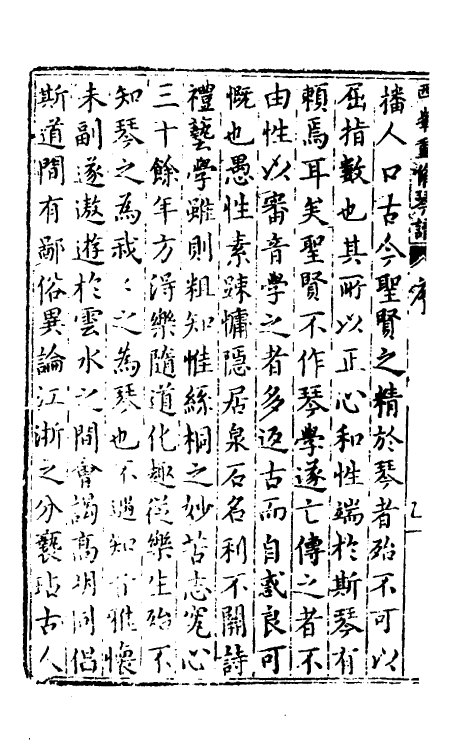 西峰重脩琴譜 序
播人口古今聖賢之精於琴者殆不可以
屈指數也其所以正心和性端於斯琴有
賴焉耳矣聖賢不作琴學遂亡傳之者不
由性以審音學之者多迈古而自惑良可
慨也愚性素踈慵隱居泉石名利不關詩
禮藝學雖則粗知惟絲桐之妙苦志究心
三十餘年方得樂隨道化趣從樂生殆不
知琴之為我〻之為琴也不過知音雅懷
未副遂遨遊於雲水之間會謁高明同侣
斯道間有鄙俗異論江浙之分褻玷古人